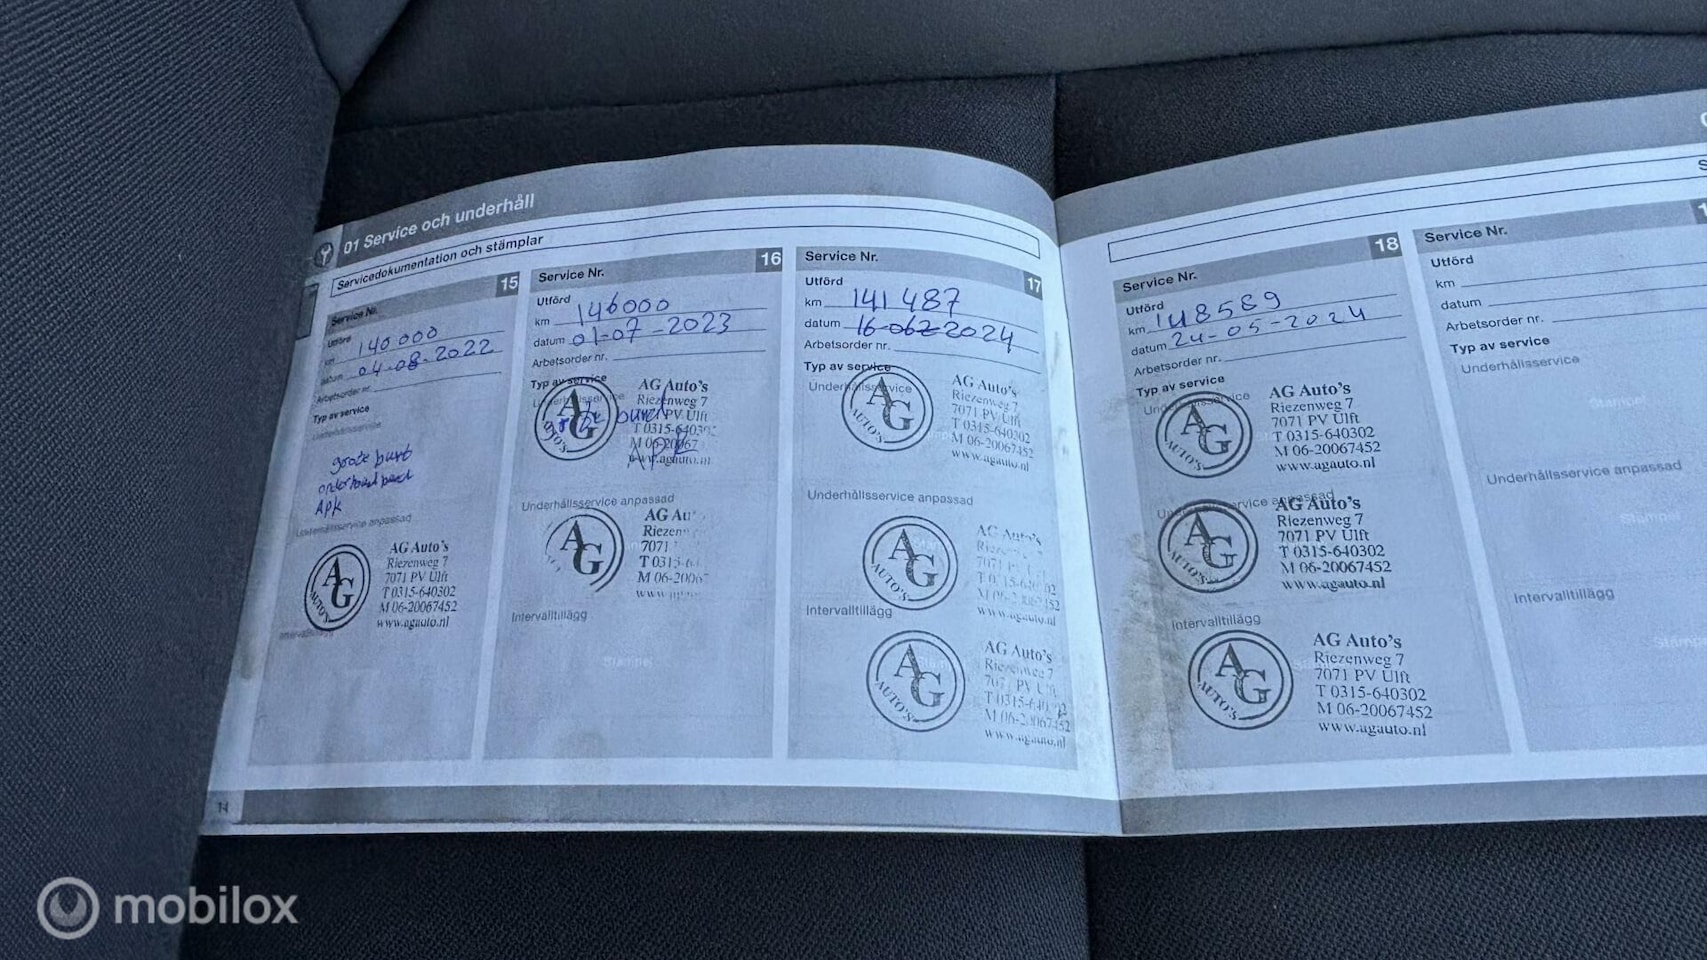 01 Service och underhåll
Servicedokumentation och stämplar
15
Service Nr.
Utförd
km 140000
datum 04-08-2022
Arbetsorder nr.
Typ av service
Underhållsservice
grote beurt
Apk
Underhållsservice anpassad
AG AUTO'S
AG Auto's
Riezenweg 7
7071 PV Ulft
T 0315-640302
M 06-20067452
www.agauto.nl
16
Service Nr.
Utförd
km 146000
datum 01-07-2023
Arbetsorder nr.
Typ av service
Underhållsservice
AG AUTO'S
AG Auto's
Riezenweg 7
7071 PV Ulft
T 0315-640302
M 06-20067
www.agauto.nl
APK
Underhållsservice anpassad
AG
AG Au
Riezen
7071
T 0315-6
M 06-2006
www
Intervalltillägg
Stämpel
17
Service Nr.
Utförd
km 141 487
datum 2024
Arbetsorder nr.
Typ av service
Underhållsservice
AG AUTO'S
AG Auto's
Riezenweg 7
7071 PV Ulft
T 0315-640302
M 06-20067452
www.agauto.nl
Underhållsservice anpassad
AG AUTO'S
AG Auto's
www.agauto.nl
Intervalltillägg
AG AUTO'S
AG Auto's
Riezenweg 7
PV Ulft
T 0315-640302
M 06-20067452
www.agauto.nl
18
Service Nr.
Utförd
km 148589
datum 24-05-2024
Arbetsorder nr.
Typ av service
Underhållsservice
AG AUTO'S
AG Auto's
Riezenweg 7
7071 PV Ulft
T 0315-640302
M 06-20067452
www.agauto.nl
Underhållsservice anpassad
AG AUTO'S
AG Auto's
Riezenweg 7
7071 PV Ulft
T 0315-640302
M 06-20067452
www.agauto.nl
Intervalltillägg
AG AUTO'S
AG Auto's
Riezenweg 7
7071 PV Ulft
T 0315-640302
M 06-20067452
www.agauto.nl
Service Nr.
Utförd
km
datum
Arbetsorder nr.
Typ av service
Underhållsservice
Stämpel
Underhållsservice anpassad
Stämpel
Intervalltillägg
14
mobilox